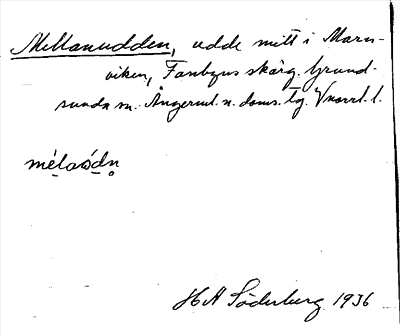 Mellanudden, udde mitt i Marn-
viken, Fanbyns skärg. Grund-
sunda sn. Ångerml. n. doms. tg. Vnorrl. l.
mèlaódn
H A Söderberg 1936